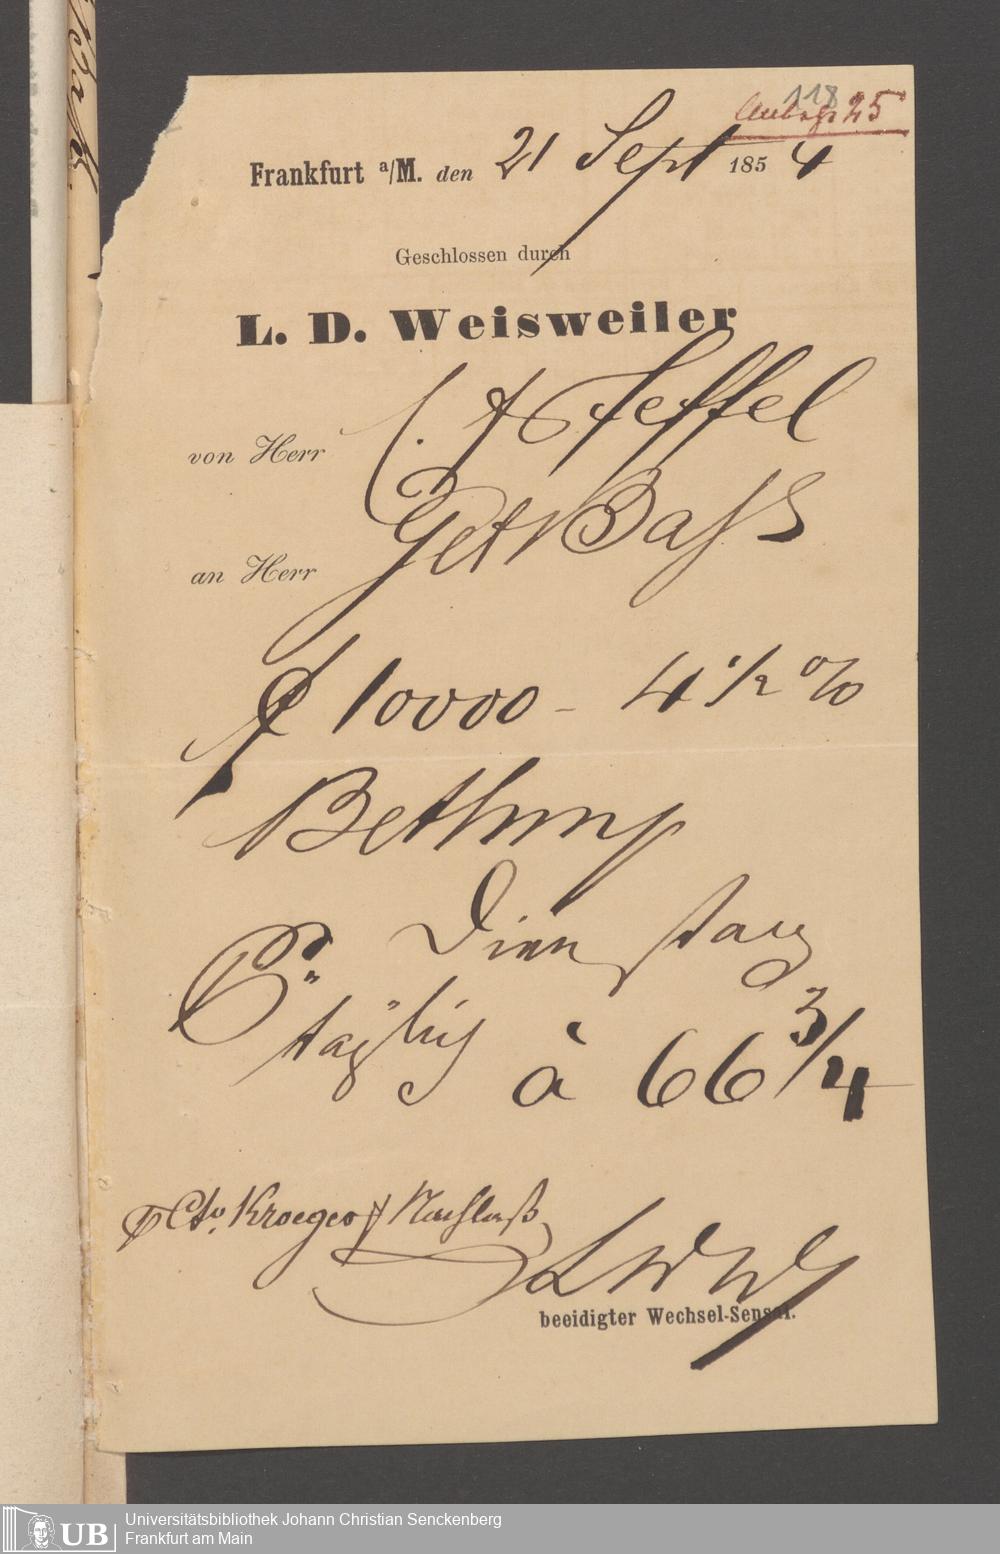 118
Anlage 25
Frankfurt a/M. den 21 Sept 1854
Geschlossen durch
L. D. Weisweiler
von Herr
an Herr Gebr Bass
f 10000 - 4 1/2 %
Bethm
Dienstag
täglich à 66 3/4
Cto. Kroeger Nachlaß
beeidigter Wechsel-Sensal.
UB
Universitätsbibliothek Johann Christian Senckenberg
Frankfurt am Main